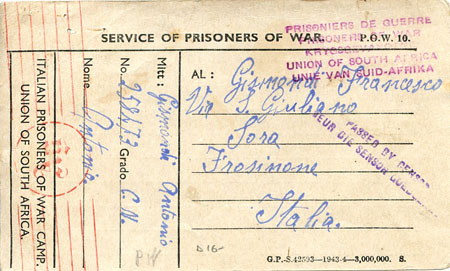 SERVICE OF PRISONERS OF WAR.
P.O.W. 10.
PRISONIERS DE GUERRE
PRISONERS OF WAR
KRYGSGEVANGENES
UNION OF SOUTH AFRICA
UNIE VAN SUID-AFRIKA
AL: Gismondi Francesco
Via S. Giuliano
Sora
Frosinone
Italia.
PASSED BY CENSOR
DEUR DIE SENSOR GOEDGEKEUR
Mitt: Gismondi Antonio
No. Grado C. N.
Nome Antonio
ITALIAN PRISONERS OF WAR CAMP.
UNION OF SOUTH AFRICA.
D 16-
G.P.-S.42593—1943-4—3,000,000. S.